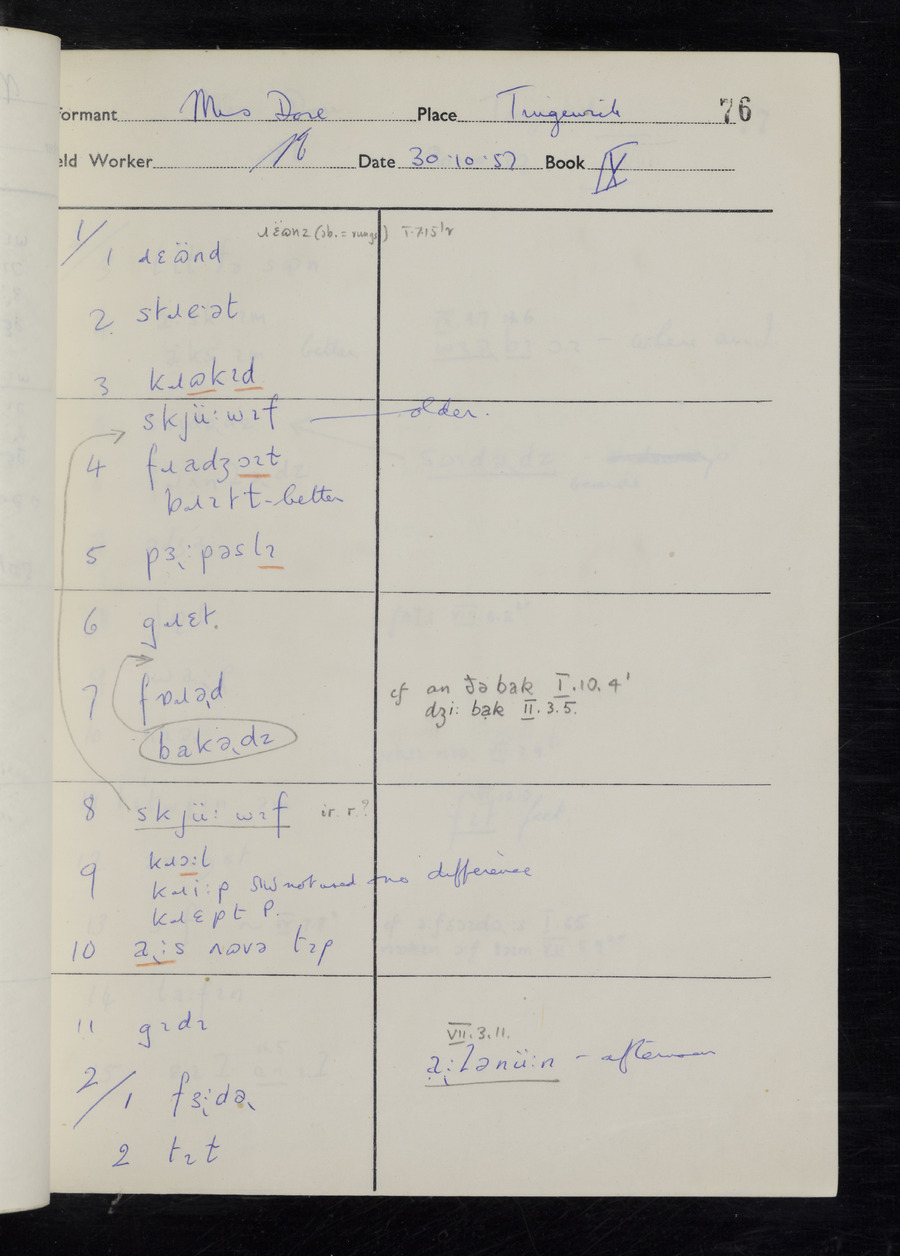 formant Mrs Dore Place Tingewick 76
eld Worker Date 30.10.57 Book IX
ɹɛɷ̈nz (sb. = rungs) I.7.15¹r
1/1 ɹɛɷ̈nd
2. stɹe·ət
3 kɹɷkɪd
skjü:wɪf — older.
4 fɹadʒɔɪt
bɹɪtt - better
5 pɜ˞:pəslɪ
6 gɹɛt.
7 fɒɹə˞d
cf an ðə bak I.10.4¹
dʒi: bak II.3.5.
bakə˞dz
8 skjü:wɪf ir. r.?
9 kɹɔ:l
kɹi:p still not used no difference
kɹɛpt p.
10 a˞:s ʌɷvə tɪp
11 gɪdɪ
VII.3.11.
a˞:ʔənü:n - afternoon
2/1 fɜ˞:də˞
2 tɪt